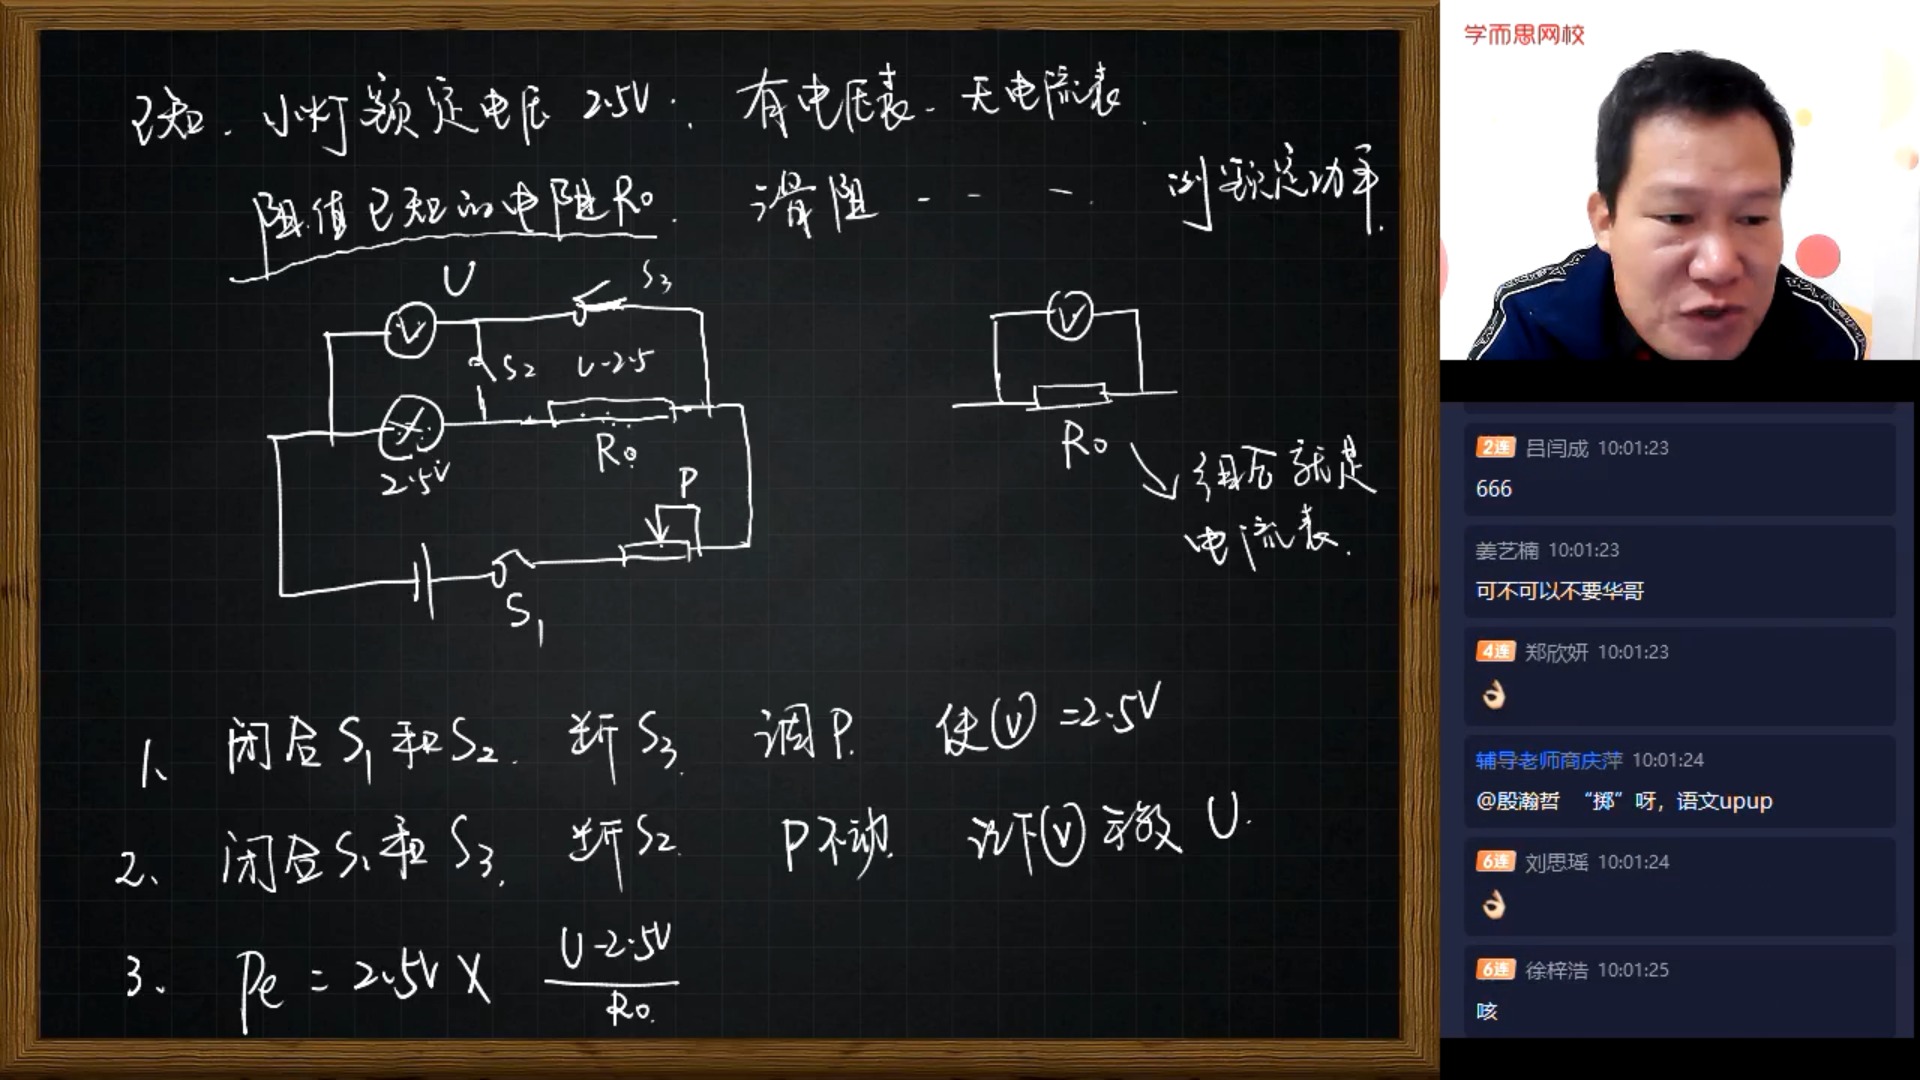 已知. 小灯额定电压 2.5V. 有电压表. 无电流表.
阻值已知的电阻R₀. 滑阻 - - - . 测额定功率.
U
S₃
V
S₂
U-2.5
2.5V
R₀
P
S₁
V
R₀
组合就是
电流表.
1、闭合S₁和S₂. 断开S₃. 调P. 使Ⓥ=2.5V
2、闭合S₁和S₃. 断开S₂. P不动. 记下Ⓥ示数 U.
3. Pe = 2.5V × (U-2.5V)/R₀.
学而思网校
2连 吕闫成 10:01:23
666
姜艺楠 10:01:23
可不可以不要华哥
4连 郑欣妍 10:01:23
👌
辅导老师商庆萍 10:01:24
@殷瀚哲 “掷”呀，语文upup
6连 刘思瑶 10:01:24
👌
6连 徐梓浩 10:01:25
咳